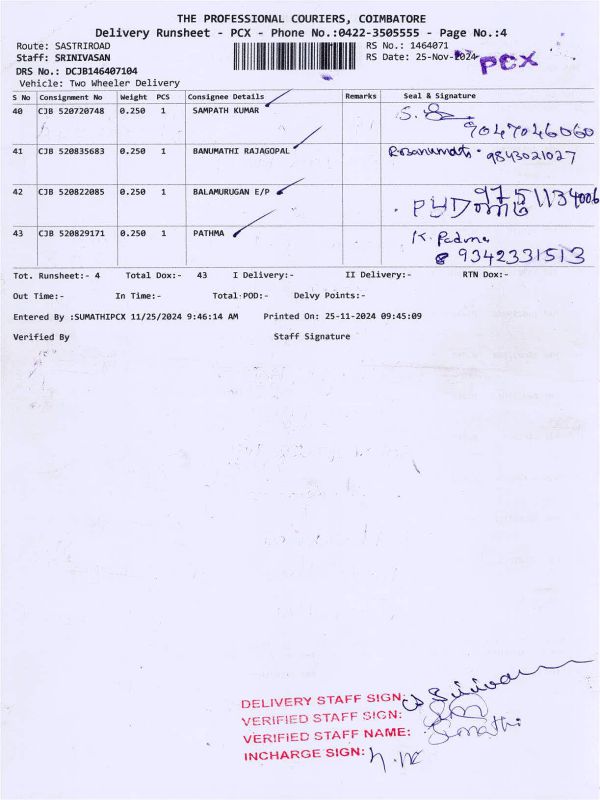 THE PROFESSIONAL COURIERS, COIMBATORE
Delivery Runsheet - PCX - Phone No.:0422-3505555 - Page No.:4
Route: SASTRIROAD RS No.: 1464071
Staff: SRINIVASAN RS Date: 25-Nov-2024 PCX
DRS No.: DCJB146407104
Vehicle: Two Wheeler Delivery
S No Consignment No Weight PCS Consignee Details Remarks Seal & Signature
40 CJB 520720748 0.250 1 SAMPATH KUMAR S.
9047046060
41 CJB 520835683 0.250 1 BANUMATHI RAJAGOPAL R.Banumathi . 9843021027
42 CJB 520822085 0.250 1 BALAMURUGAN E/P 9751134006
43 CJB 520829171 0.250 1 PATHMA K. Padma
9342331513
Tot. Runsheet:- 4 Total Dox:- 43 I Delivery:- II Delivery:- RTN Dox:-
Out Time:- In Time:- Total POD:- Delvy Points:-
Entered By :SUMATHIPCX 11/25/2024 9:46:14 AM Printed On: 25-11-2024 09:45:09
Verified By Staff Signature
DELIVERY STAFF SIGN: Srinivasan
VERIFIED STAFF SIGN:
VERIFIED STAFF NAME: Sumathi
INCHARGE SIGN: